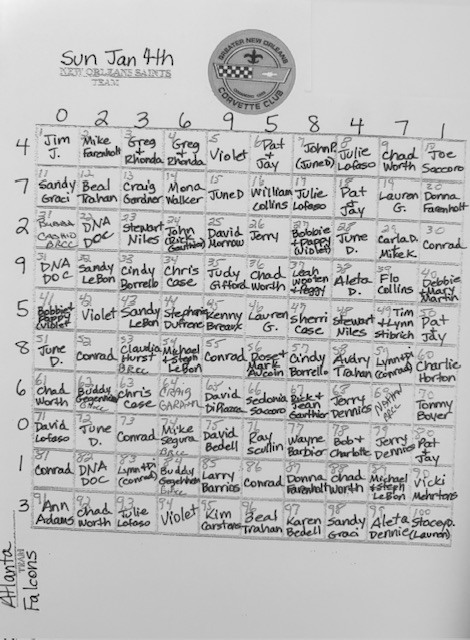 Sun Jan 4th
NEW ORLEANS SAINTS
TEAM
GREATER NEW ORLEANS
CORVETTE CLUB
0 2 3 6 9 5 8 4 7 1
4
1 Jim J.
2 Mike Farenholt
3 Greg + Rhonda
4 Greg + Rhonda
5 Violet
6 Pat + Jay
7 John P. (June D)
8 Julie Lofaso
9 Chad Worth
10 Joe Saccoro
7
11 Sandy Graci
12 Beal Trahan
13 Craig Gardner
14 Mona Walker
15 June D
16 William Collins
17 Julie Lofaso
18 Pat + Jay
19 Lauren G.
20 Donna Farenholt
2
21 Bubba BRCC
22 DNA DOC
23 Stewart Niles
24 John (Rick Gauthier)
25 David Morrow
26 Jerry
27 Bobbie + Pappy (Violet)
28 June D.
29 Carla D. Mike K.
30 Conrad
9
31 DNA DOC
32 Sandy LeBon
33 Cindy Borrello
34 Chris Case
35 Judy Gifford
36 Chad Worth
37 Leah Wooten + Peggy
38 Aleta D.
39 Flo Collins
40 Debbie + Mary Martin
5
41 Bobbie + Pappy (Violet
42 Violet
43 Sandy LeBon
44 Stephanie Dufrene
45 Kenny Breaux
46 Lauren G.
47 Sherri Case
48 Stewart Niles
49 Tim + Lynn Stibrich
50 Pat + Jay
8
51 June D.
52 Conrad
53 Claudia Hurst BRCC
54 Michael + Steph LeBon
55 Conrad
56 Rose + Mark Aucoin
57 Cindy Borrello
58 Audry Trahan
59 Lynn + Di (Conrad)
60 Charlie Horton
6
61 Chad Worth
62 Buddy Gegenheimer BRCC
63 Chris Case
64 CRAIG GARDNER
65 David DiPiazza
66 Sedonia Saccoro
67 Rick + Jean Gauthier
68 Jerry Dennies
69 BRCC
70 Tommy Boyer
0
71 David Lofaso
72 June D.
73 Conrad
74 Mike Segura BRCC
75 David Bedell
76 Ray Scullin
77 Wayne Barbier
78 Bob + Charlotte
79 Jerry Dennies
80 Pat + Jay
1
81 Conrad
82 DNA DOC
83 Lynn + Di (Conrad)
84 Buddy Gegenheimer BRCC
85 Larry Barrios
86 Conrad
87 Donna Farenholt
88 Chad Worth
89 Michael + Steph LeBon
90 Vicki Mehrtens
3
91 Ann Adams
92 Chad Worth
93 Julie Lofaso
94 Violet
95 Kim Carstens
96 Beal Trahan
97 Karen Bedell
98 Sandy Graci
99 Aleta Dennie
100 Stacey D. (Lauren)
Atlanta
TEAM
Falcons